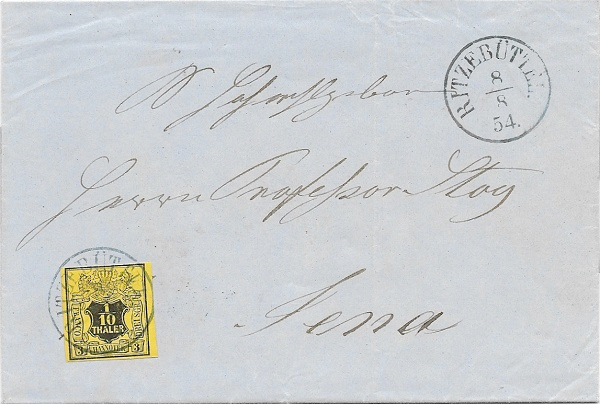 RITZEBÜTTEL
8
8
54.
Herrn Professor Stoy
Jena
1
10
THALER
HANNOVER